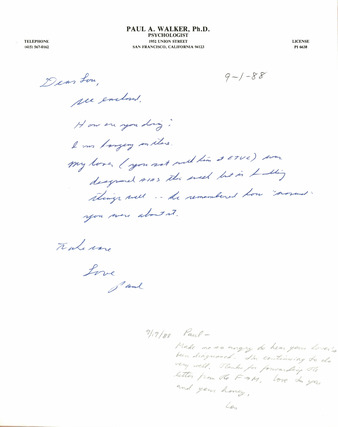 PAUL A. WALKER, Ph.D.
PSYCHOLOGIST
TELEPHONE 1952 UNION STREET LICENSE
SAN FRANCISCO, CALIFORNIA 94123
Dear Lou, 9-1-88
See enclosed.
How are you doing?
I am hanging in there.
My lover (you met him at
diagnosed AIDS this week but is handling
things well -- he remembered how "normal"
you were about it.
Take care
Love
Paul
Paul -
Made me so angry to hear your lover's
been diagnosed. I'm continuing to do
very well. Thanks for forwarding the
letter from the F→M. Love to you
and your honey,
Lou